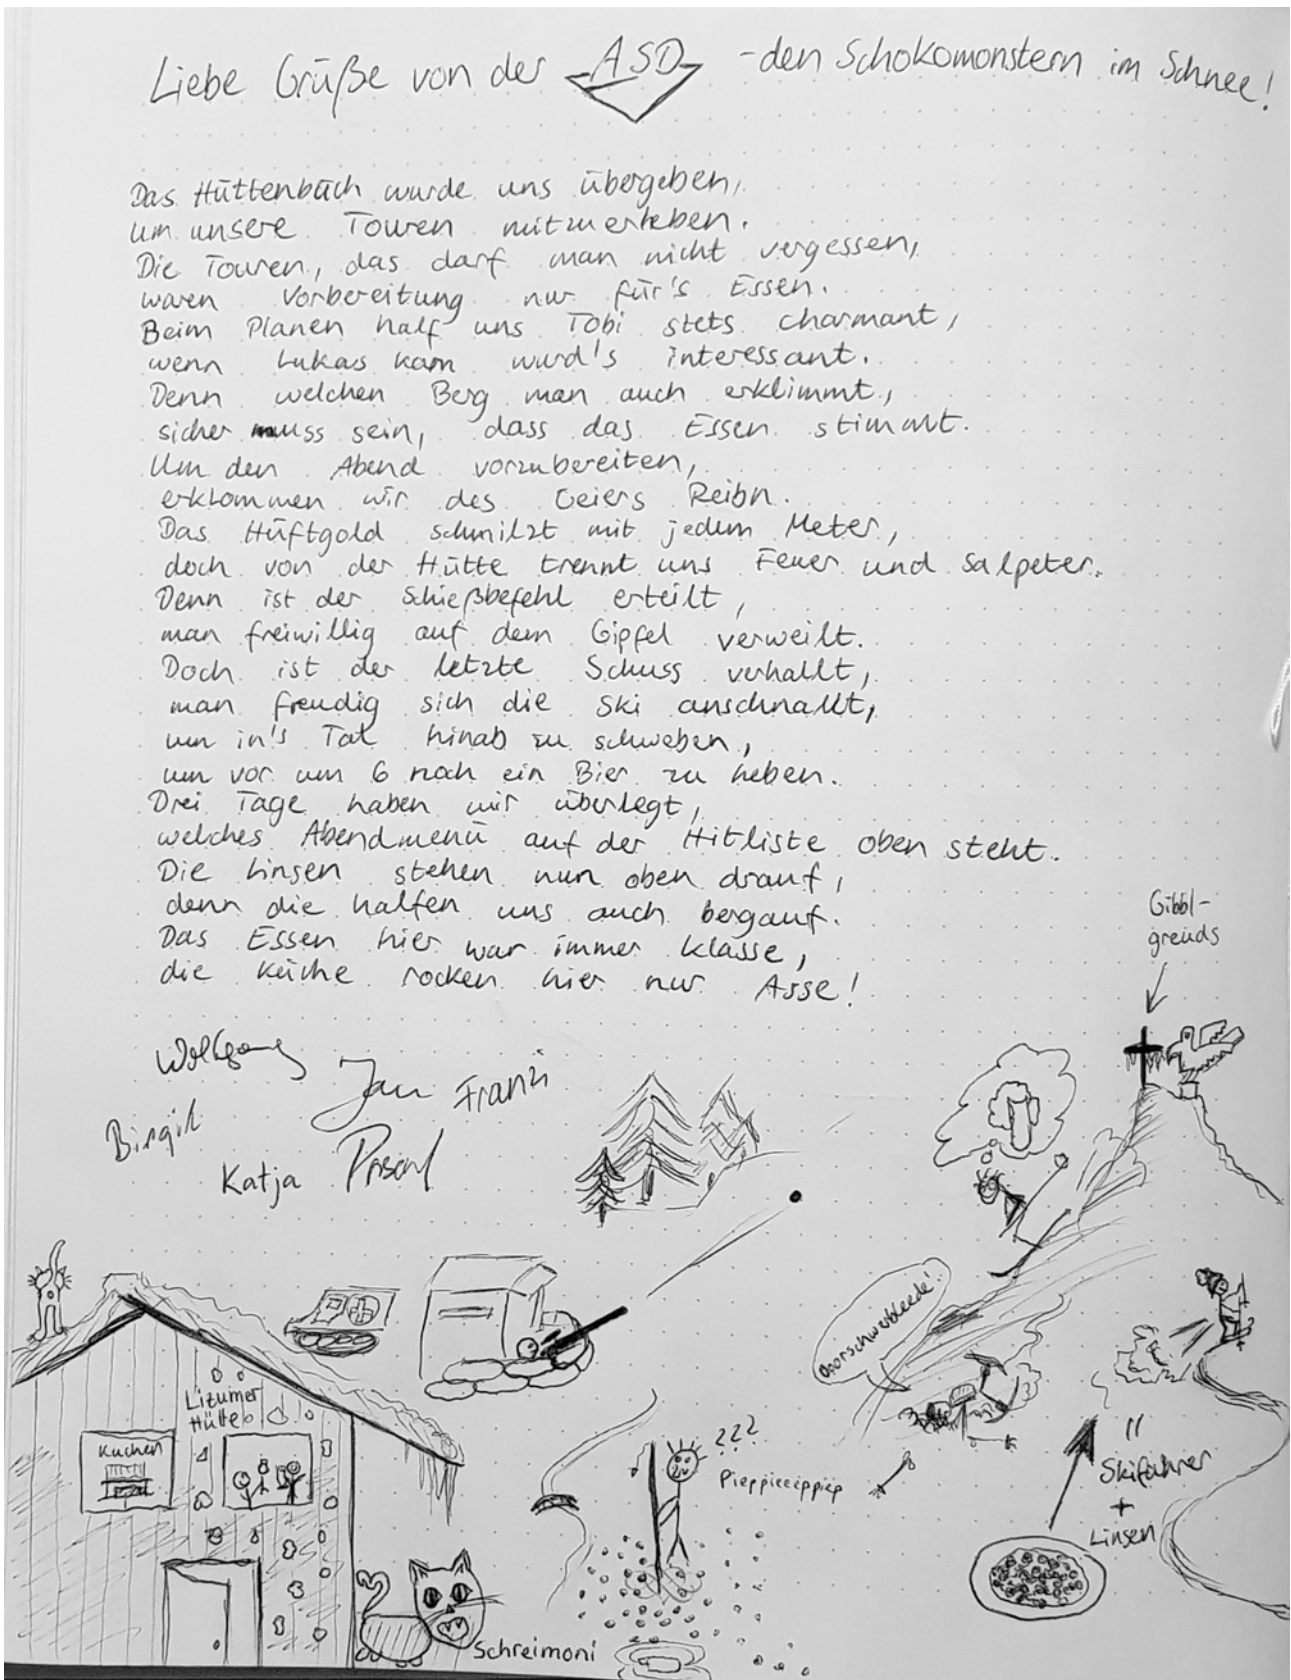 Liebe Grüße von der ASD - den Schokomonstern im Schnee!
Das Hüttenbuch wurde uns übergeben,
um unsere Touren mitzuerleben.
Die Touren, das darf man nicht vergessen,
waren Vorbereitung nur für's Essen.
Beim Planen half uns Tobi stets charmant,
wenn Lukas kam wurd's interessant.
Denn welchen Berg man auch erklimmt,
sicher muss sein, dass das Essen stimmt.
Um den Abend vorzubereiten,
erklommen wir des Geiers Reibn.
Das Hüftgold schmilzt mit jedem Meter,
doch von der Hütte trennt uns Feuer und Salpeter.
Denn ist der Schießbefehl erteilt,
man freiwillig auf dem Gipfel verweilt.
Doch ist der letzte Schuss verhallt,
man freudig sich die Ski anschnallt,
um in's Tal hinab zu schweben,
um vor um 6 noch ein Bier zu heben.
Drei Tage haben wir überlegt,
welches Abendmenü auf der Hitliste oben steht.
Die Linsen stehen nun oben drauf,
denn die halfen uns auch bergauf.
Das Essen hier war immer klasse,
die Küche rocken hier nur Asse!
Gibbl-
greuds
Wolfgang
Jan Franzi
Birgit
Katja Pascal
Doorschwerbleede!
Lizumer
Hütte
Kuchen
???
Pieppieeippiep
"
Skifahrer
+
Linsen
Schreimoni